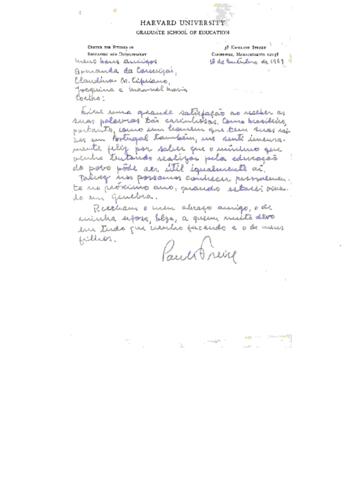 HARVARD UNIVERSITY
GRADUATE SCHOOL OF EDUCATION
CENTER FOR STUDIES IN
EDUCATION AND DEVELOPMENT
CAMBRIDGE, MASSACHUSETTS 02138
de 1969
Meus bons amigos
Armanda da Conceição,
Claudino M. Cipriano,
Joaquina e Manuel Maria
Coelho:
Tive uma grande satisfação ao receber as
suas palavras tão carinhosas. Como brasileiro,
portanto, como um homem que tem suas raí-
zes em Portugal também, me sinto imensa-
mente feliz por saber que o mínimo que
venho tentando realizar pela educação
do povo pôde ser útil igualmente aí.
Talvez nos possamos conhecer pessoalmen-
te no próximo ano, quando estarei viven-
do em Genebra.
Recebam o meu abraço amigo, o de
minha esposa, Elza, a quem muito devo
em tudo que venho fazendo e o de meus
filhos.
Paulo Freire